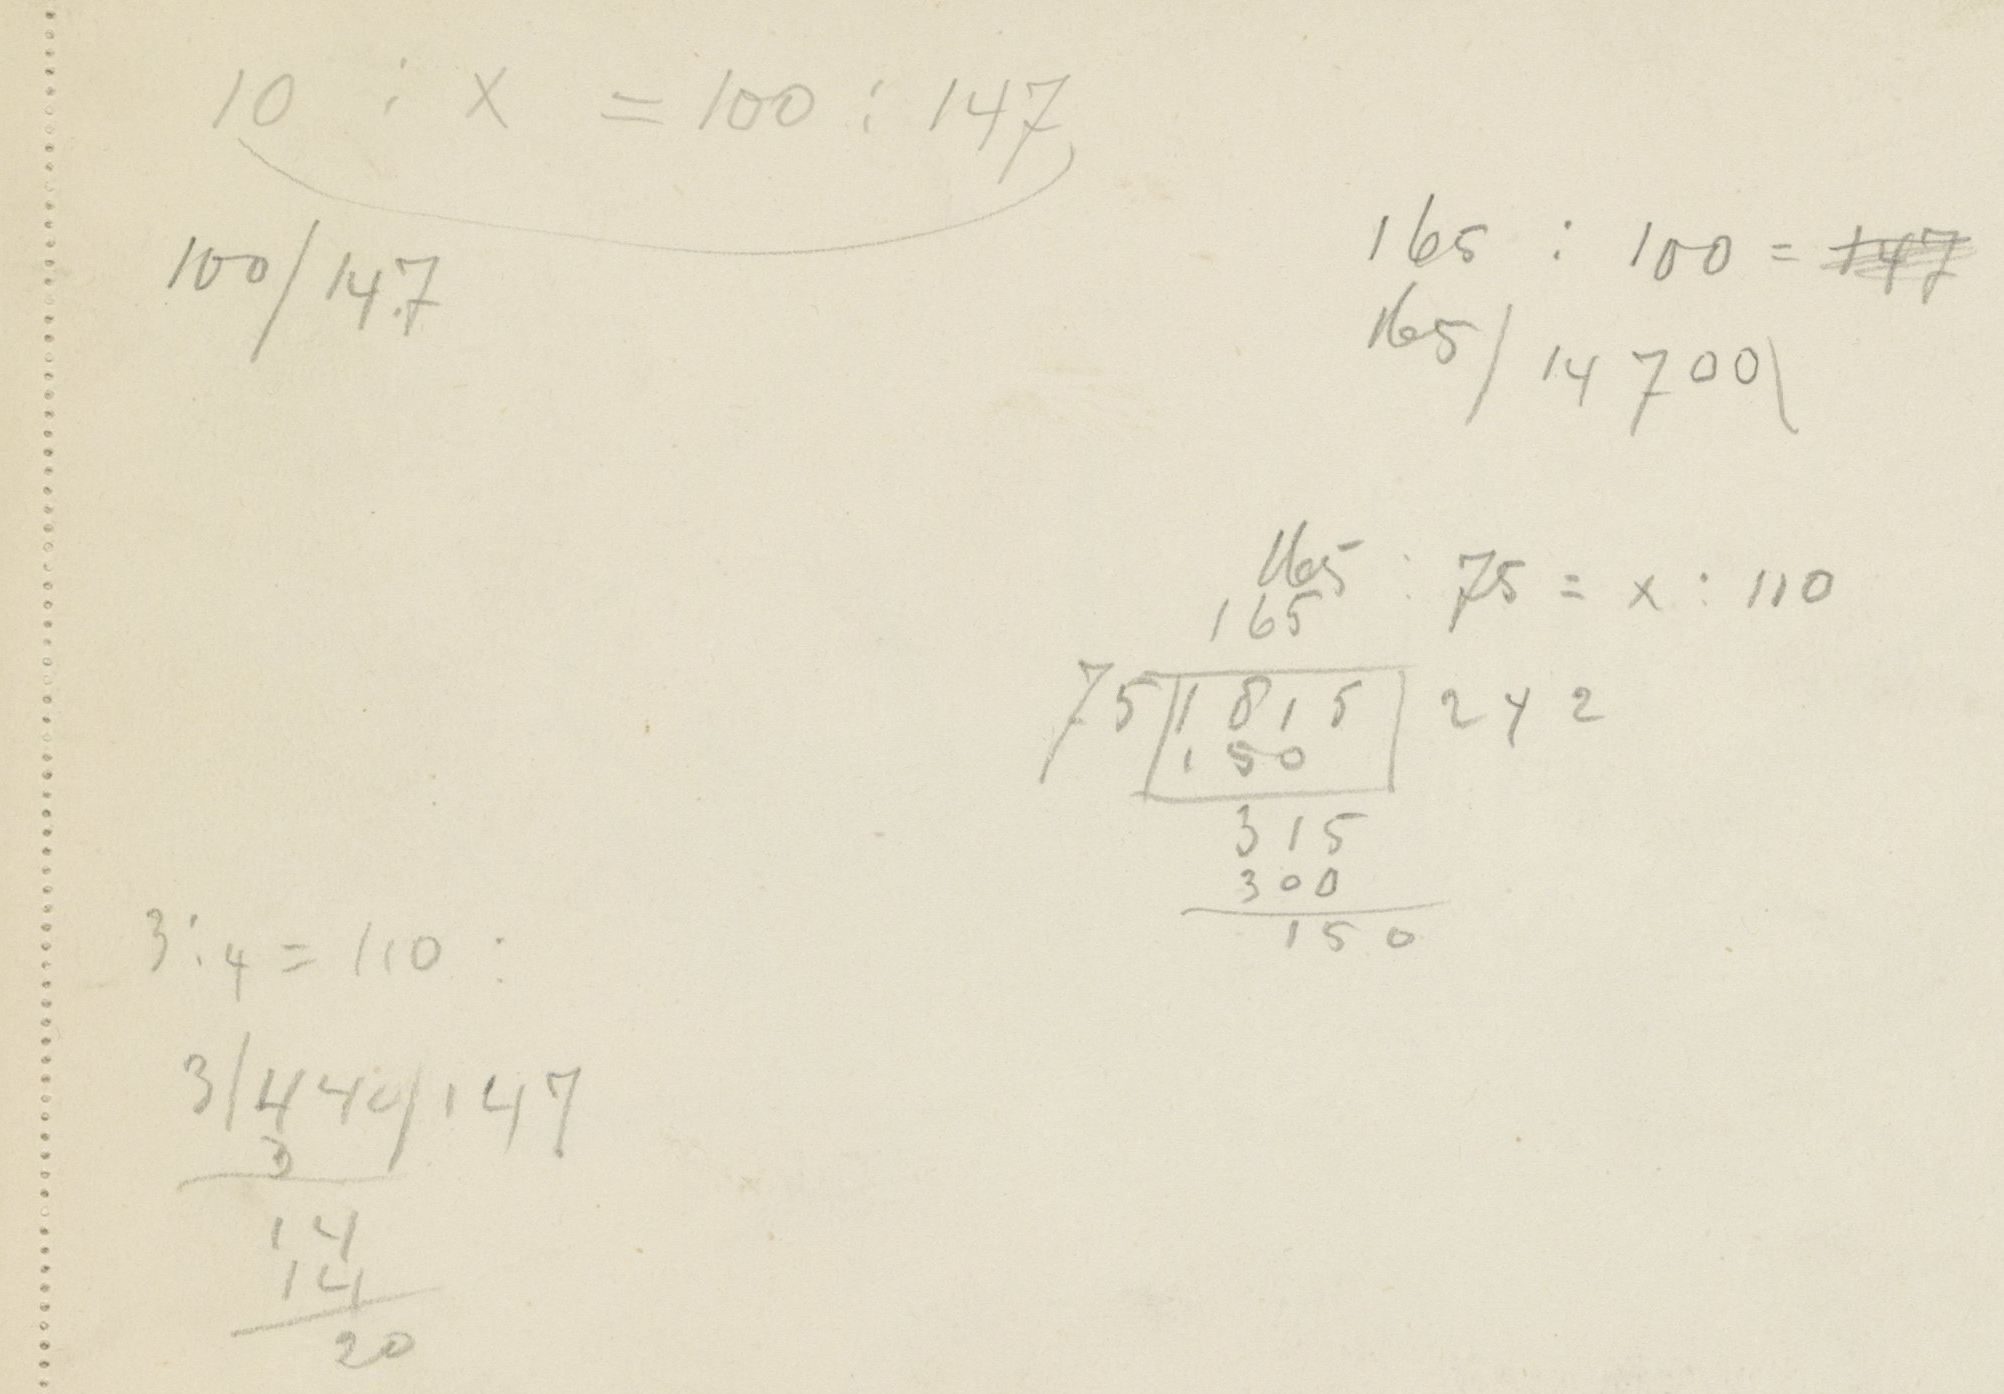 10 : x = 100 : 147
100/147
165 : 100 = 147
165/14700\
165 : 75 = x : 110
165
75/1815/242
150
315
300
150
3:4 = 110 :
3/440/147
3
14
14
20